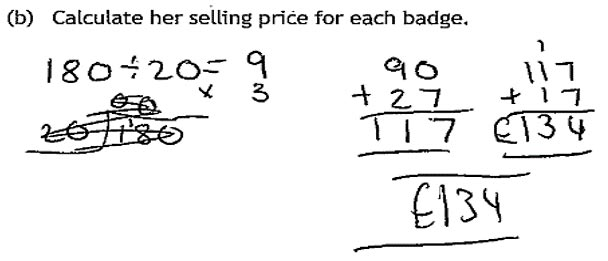 (b) Calculate her selling price for each badge.
180 ÷ 20 = 9
× 3
90
+ 27
117
1
117
+ 17
£134
£134